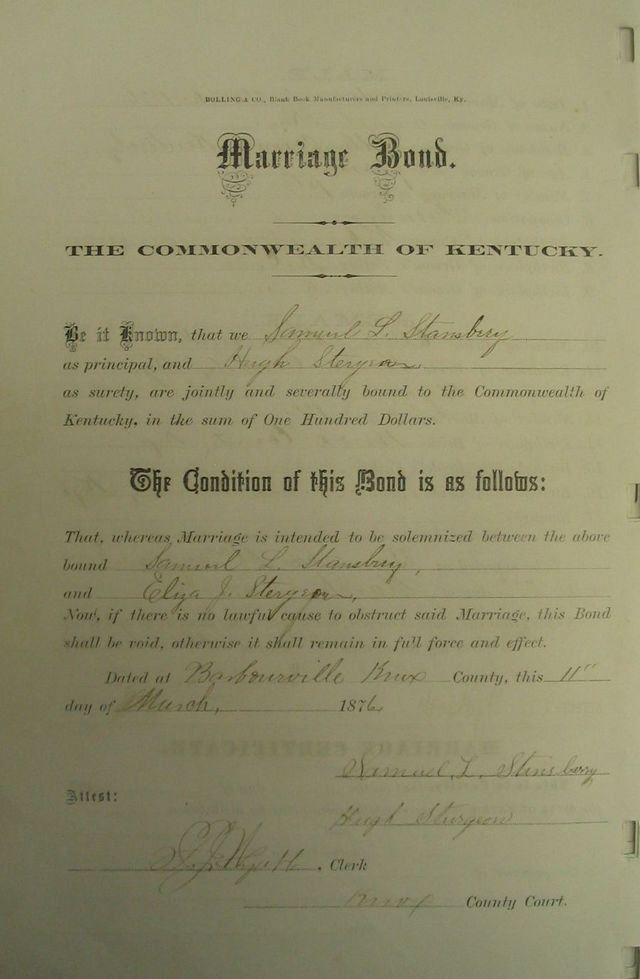 BOLLING & CO., Blank Book Manufacturers and Printers, Louisville, Ky.
Marriage Bond.
THE COMMONWEALTH OF KENTUCKY.
Be it Known, that we Samuel L. Stansbery
as principal, and Hugh Stergeon,
as surety, are jointly and severally bound to the Commonwealth of
Kentucky, in the sum of One Hundred Dollars.
The Condition of this Bond is as follows:
That, whereas, Marriage is intended to be solemnized between the above
bound Samuel L. Stansbery,
and Eliza J. Stergeon,
Now, if there is no lawful cause to obstruct said Marriage, this Bond
shall be void, otherwise it shall remain in full force and effect.
Dated at Barbourville Knox County, this 11"
day of March, 1876,
Samuel L. Stinsberry
Attest: Hugh Sturgeon
, Clerk
Knox County Court.